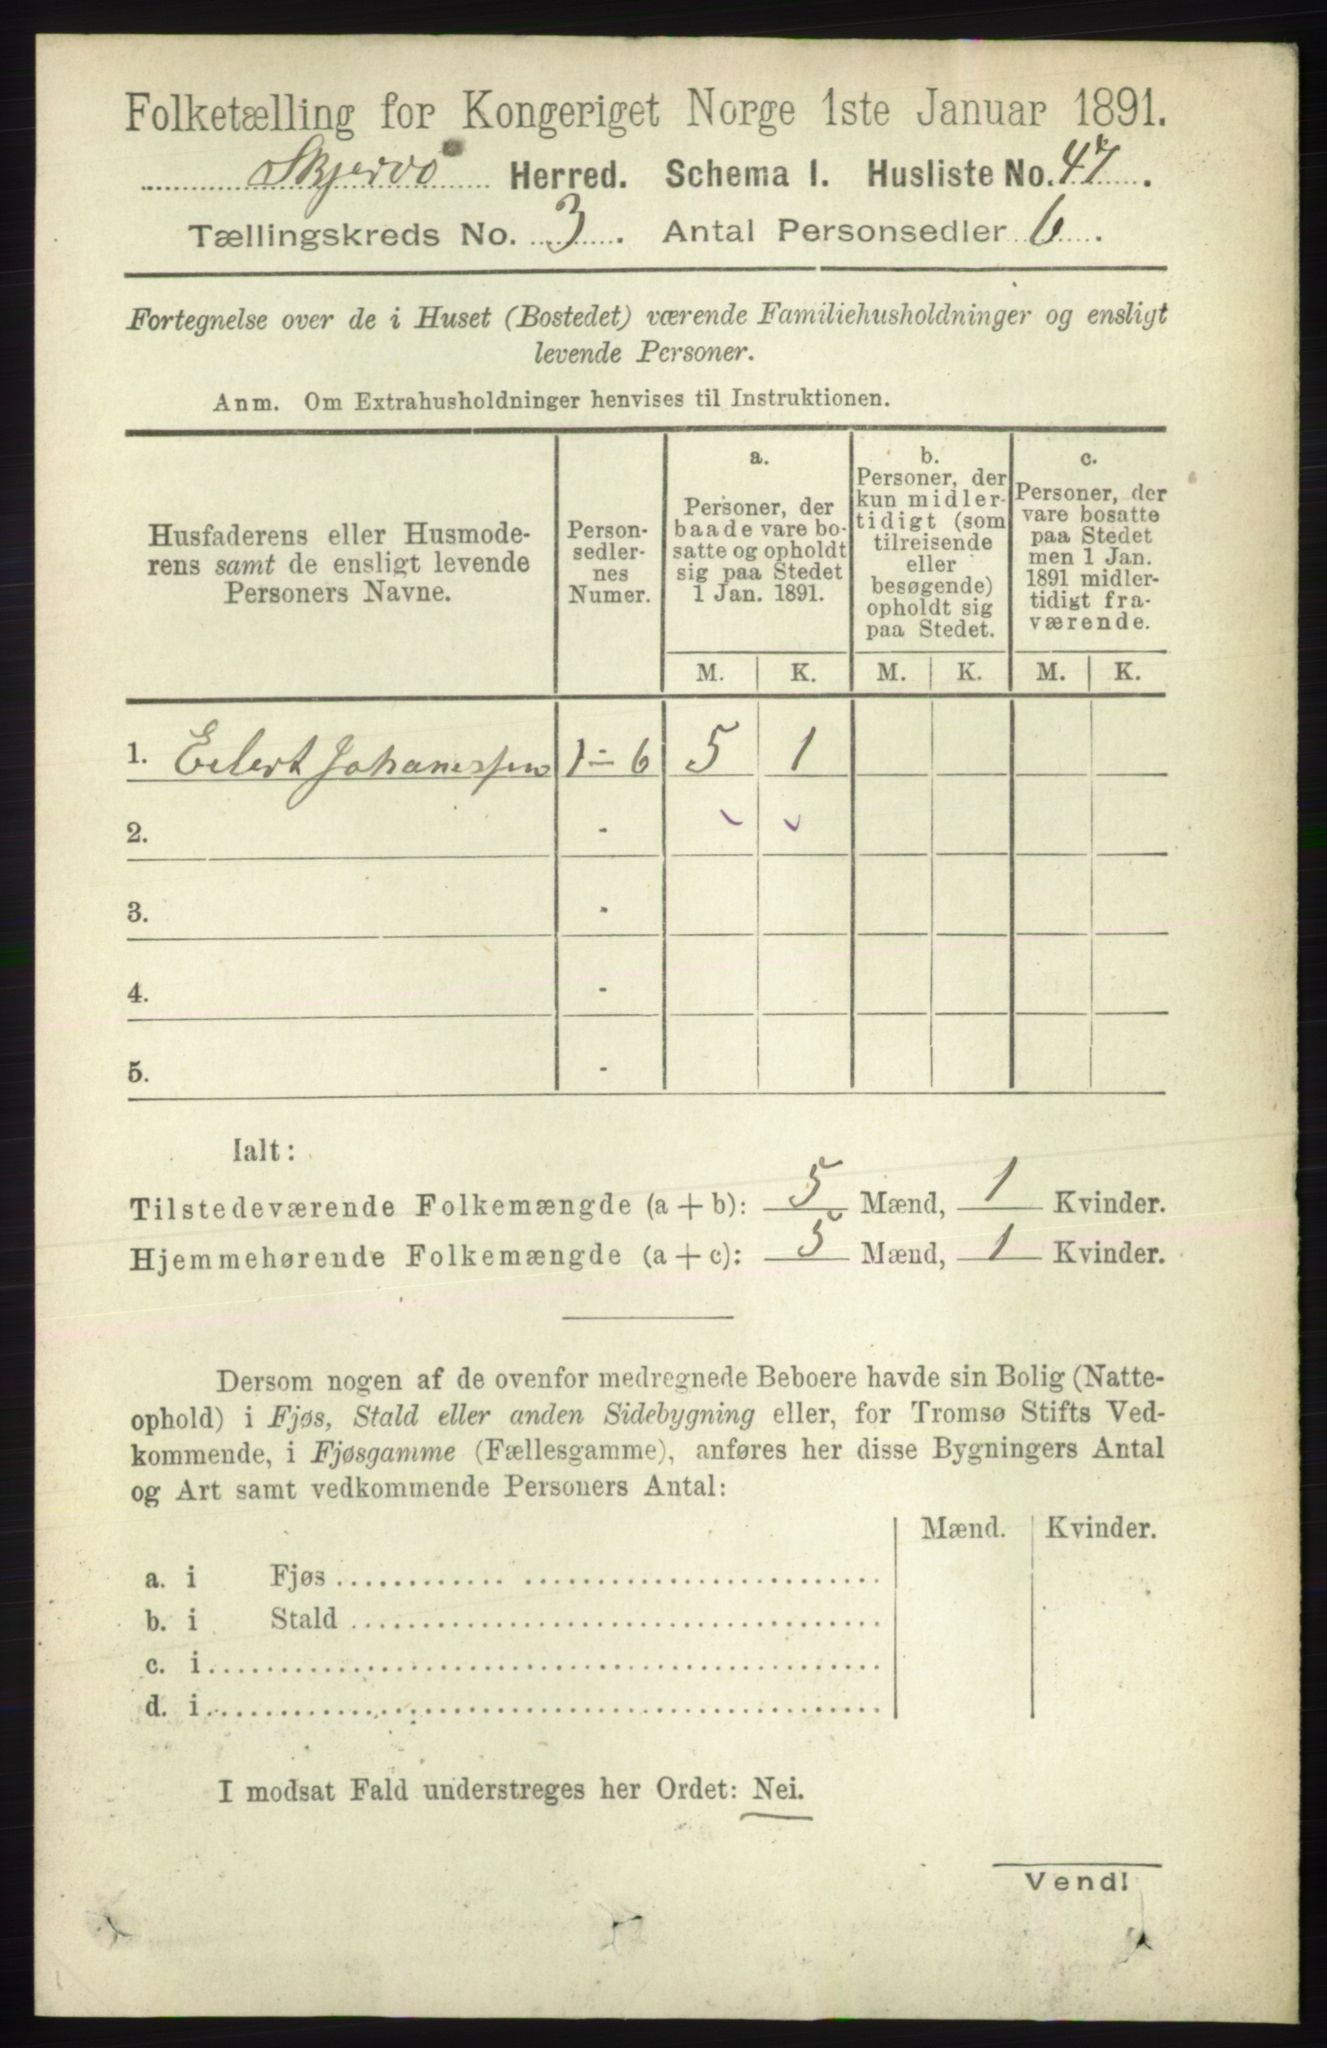 Folketælling for Kongeriget Norge 1ste Januar 1891.
Skjervö Herred. Schema I. Husliste No. 47.
Tællingskreds No. 3. Antal Personsedler 6.
Fortegnelse over de i Huset (Bostedet) værende Familiehusholdninger og ensligt
levende Personer.
Anm. Om Extrahusholdninger henvises til Instruktionen.
Husfaderens eller Husmode-
rens samt de ensligt levende
Personers Navne.
Person-
sedler-
nes
Numer.
a.
Personer, der
baade vare bo-
satte og opholdt
sig paa Stedet
1 Jan. 1891.
b.
Personer, der
kun midler-
tidigt (som
tilreisende
eller
besøgende)
opholdt sig
paa Stedet.
c.
Personer, der
vare bosatte
paa Stedet
men 1 Jan.
1891 midler-
tidigt fra-
værende.
M. K. M. K. M. K.
1. Eilert Johanessen 1 - 6 5 1
2. -
3. -
4. -
5. -
Ialt:
Tilstedeværende Folkemængde (a + b): 5 Mænd, 1 Kvinder.
Hjemmehørende Folkemængde (a + c): 5 Mænd, 1 Kvinder.
Dersom nogen af de ovenfor medregnede Beboere havde sin Bolig (Natte-
ophold) i Fjøs, Stald eller anden Sidebygning eller, for Tromsø Stifts Ved-
kommende, i Fjøsgamme (Fællesgamme), anføres her disse Bygningers Antal
og Art samt vedkommende Personers Antal:
Mænd. Kvinder.
a. i Fjøs
b. i Stald
c. i
d. i
I modsat Fald understreges her Ordet: Nei.
Vend!